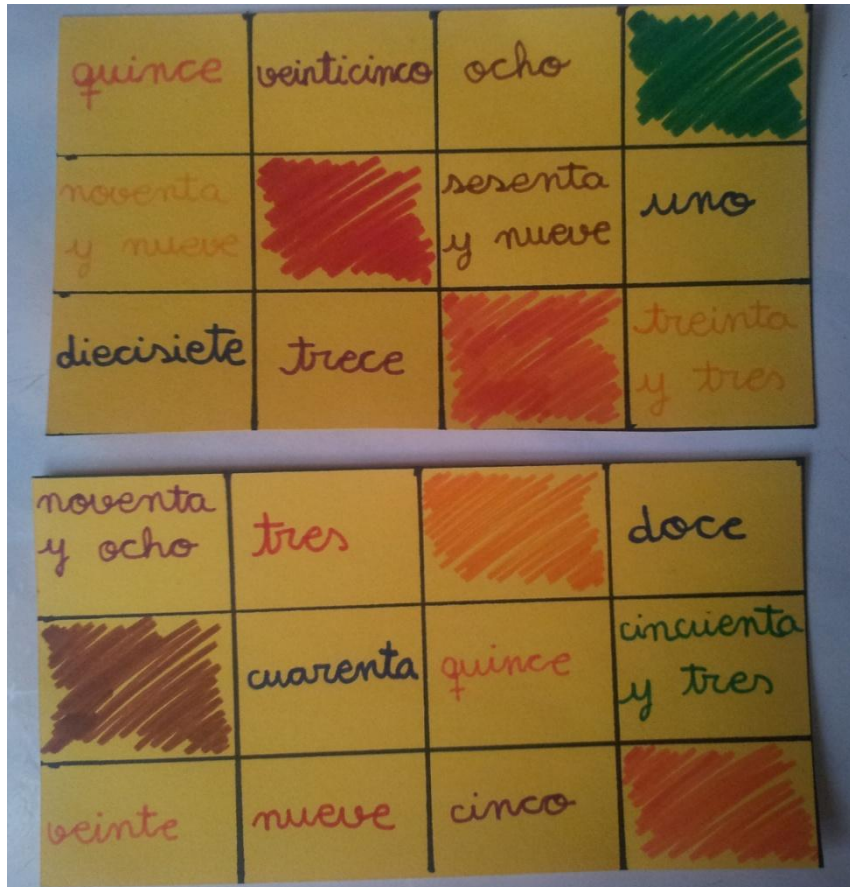 quince
veinticinco
ocho
noventa
y nueve
sesenta
y nueve
uno
diecisiete
trece
treinta
y tres
noventa
y ocho
tres
doce
cuarenta
quince
cincuenta
y tres
veinte
nueve
cinco